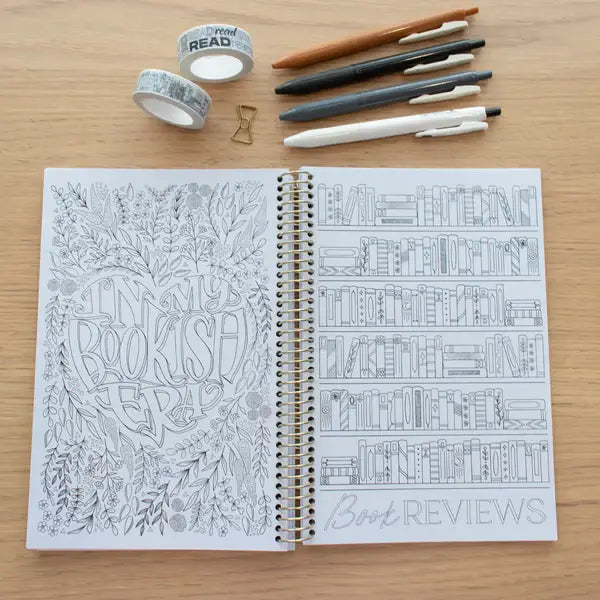 READ read
READ
IN MY
BOOKISH
ERA
Book REVIEWS